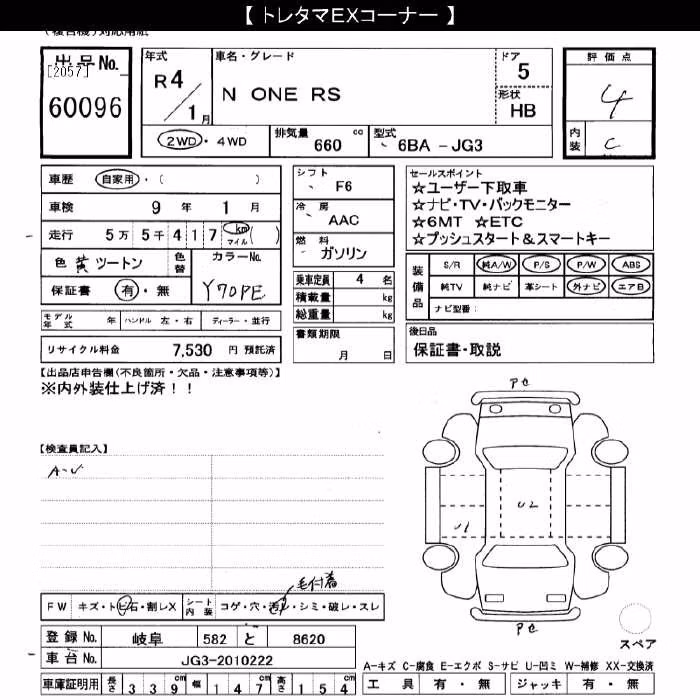 【 トレタマEXコーナー 】
出品No.
[2057]
60096
年式
R4/1月
車名・グレード
N ONE RS
ドア
5
形状
HB
2WD・4WD
排気量
660 cc
型式
6BA - JG3
評価点
4
内装
C
車歴 自家用・( )
車検 9年 1月
走行 5万 5千 4 1 7 km マイル ( )
色 黄 ツートン
色替
カラーNo.
Y70PE
保証書 有・無
モデル年式 年 ハンドル 左・右 ディーラー・並行
リサイクル料金 7,530 円 預託済
シフト
F6
冷房
AAC
燃料
ガソリン
乗車定員 4 名
積載量 kg
総重量 kg
書類期限
月 日
セールスポイント
☆ユーザー下取車
☆ナビ・TV・バックモニター
☆6MT ☆ETC
☆プッシュスタート&スマートキー
装備品
S/R 純A/W P/S P/W ABS
純TV 純ナビ 革シート 外ナビ エアB
ナビ型番:
後日品
保証書・取説
【出品店申告欄(不良箇所・欠品・注意事項等)】
※内外装仕上げ済!!
【検査員記入】
A-U
U2
U1
FW キズ・トビ石・割レX
シート内装 コゲ・穴・汚レ・シミ・破レ・スレ
毛付着
登録No. 岐阜 582 と 8620
車台No. JG3-2010222
車庫証明用 長さ 339cm 幅 147cm 高さ 154cm
スペア
A-キズ C-腐食 E-エクボ S-サビ U-凹ミ W-補修 XX-交換済
工具 有・無 ジャッキ 有・無